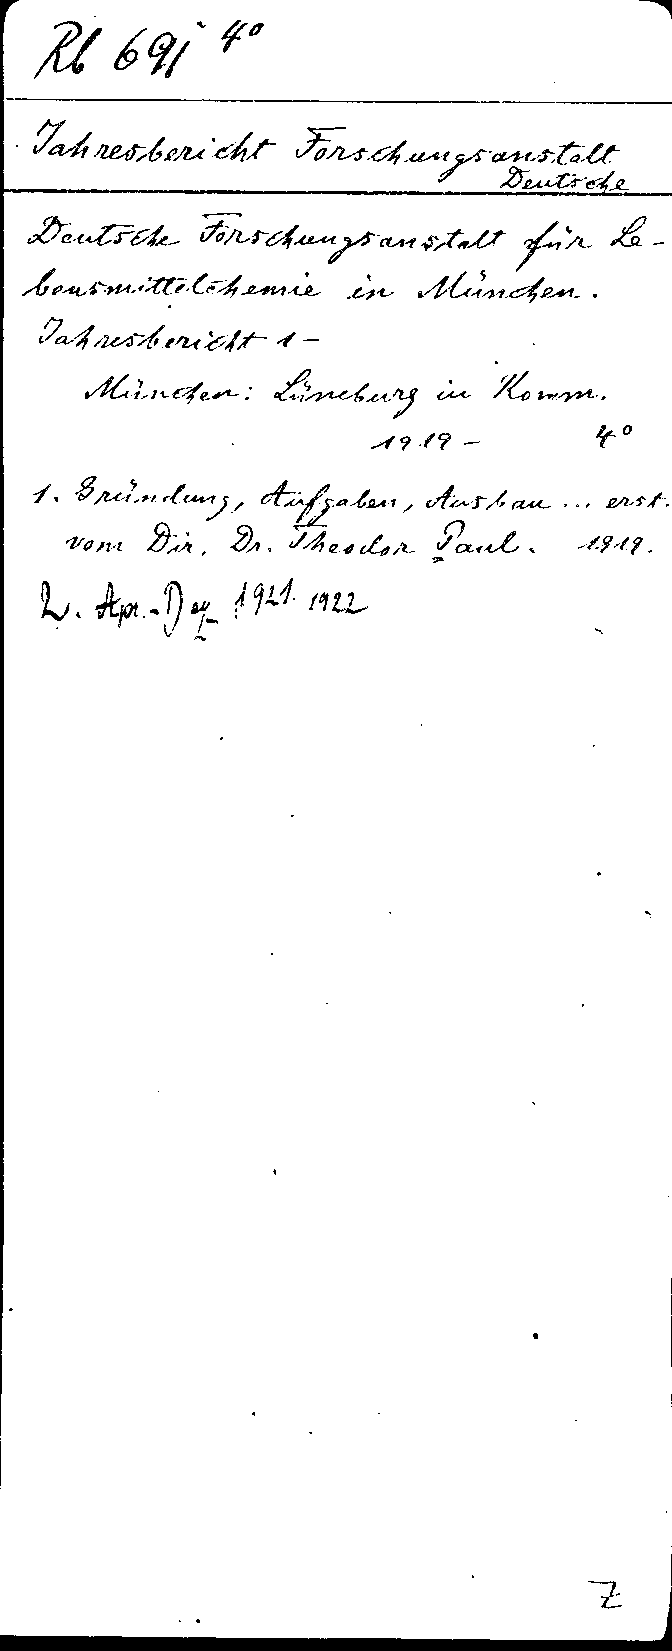 Rb 69i 4°
Jahresbericht Forschungsanstalt
Deutsche
Deutsche Forschungsanstalt für Le-
bensmittelchemie in München.
Jahresbericht 1 –
München: Lüneburg in Komm.
1919 – 4°
1. Gründung, Aufgaben, Ausbau ... erst.
vom Dir. Dr. Theodor Paul. 1919.
2. Apr.-Dez 1921. 1922
Z